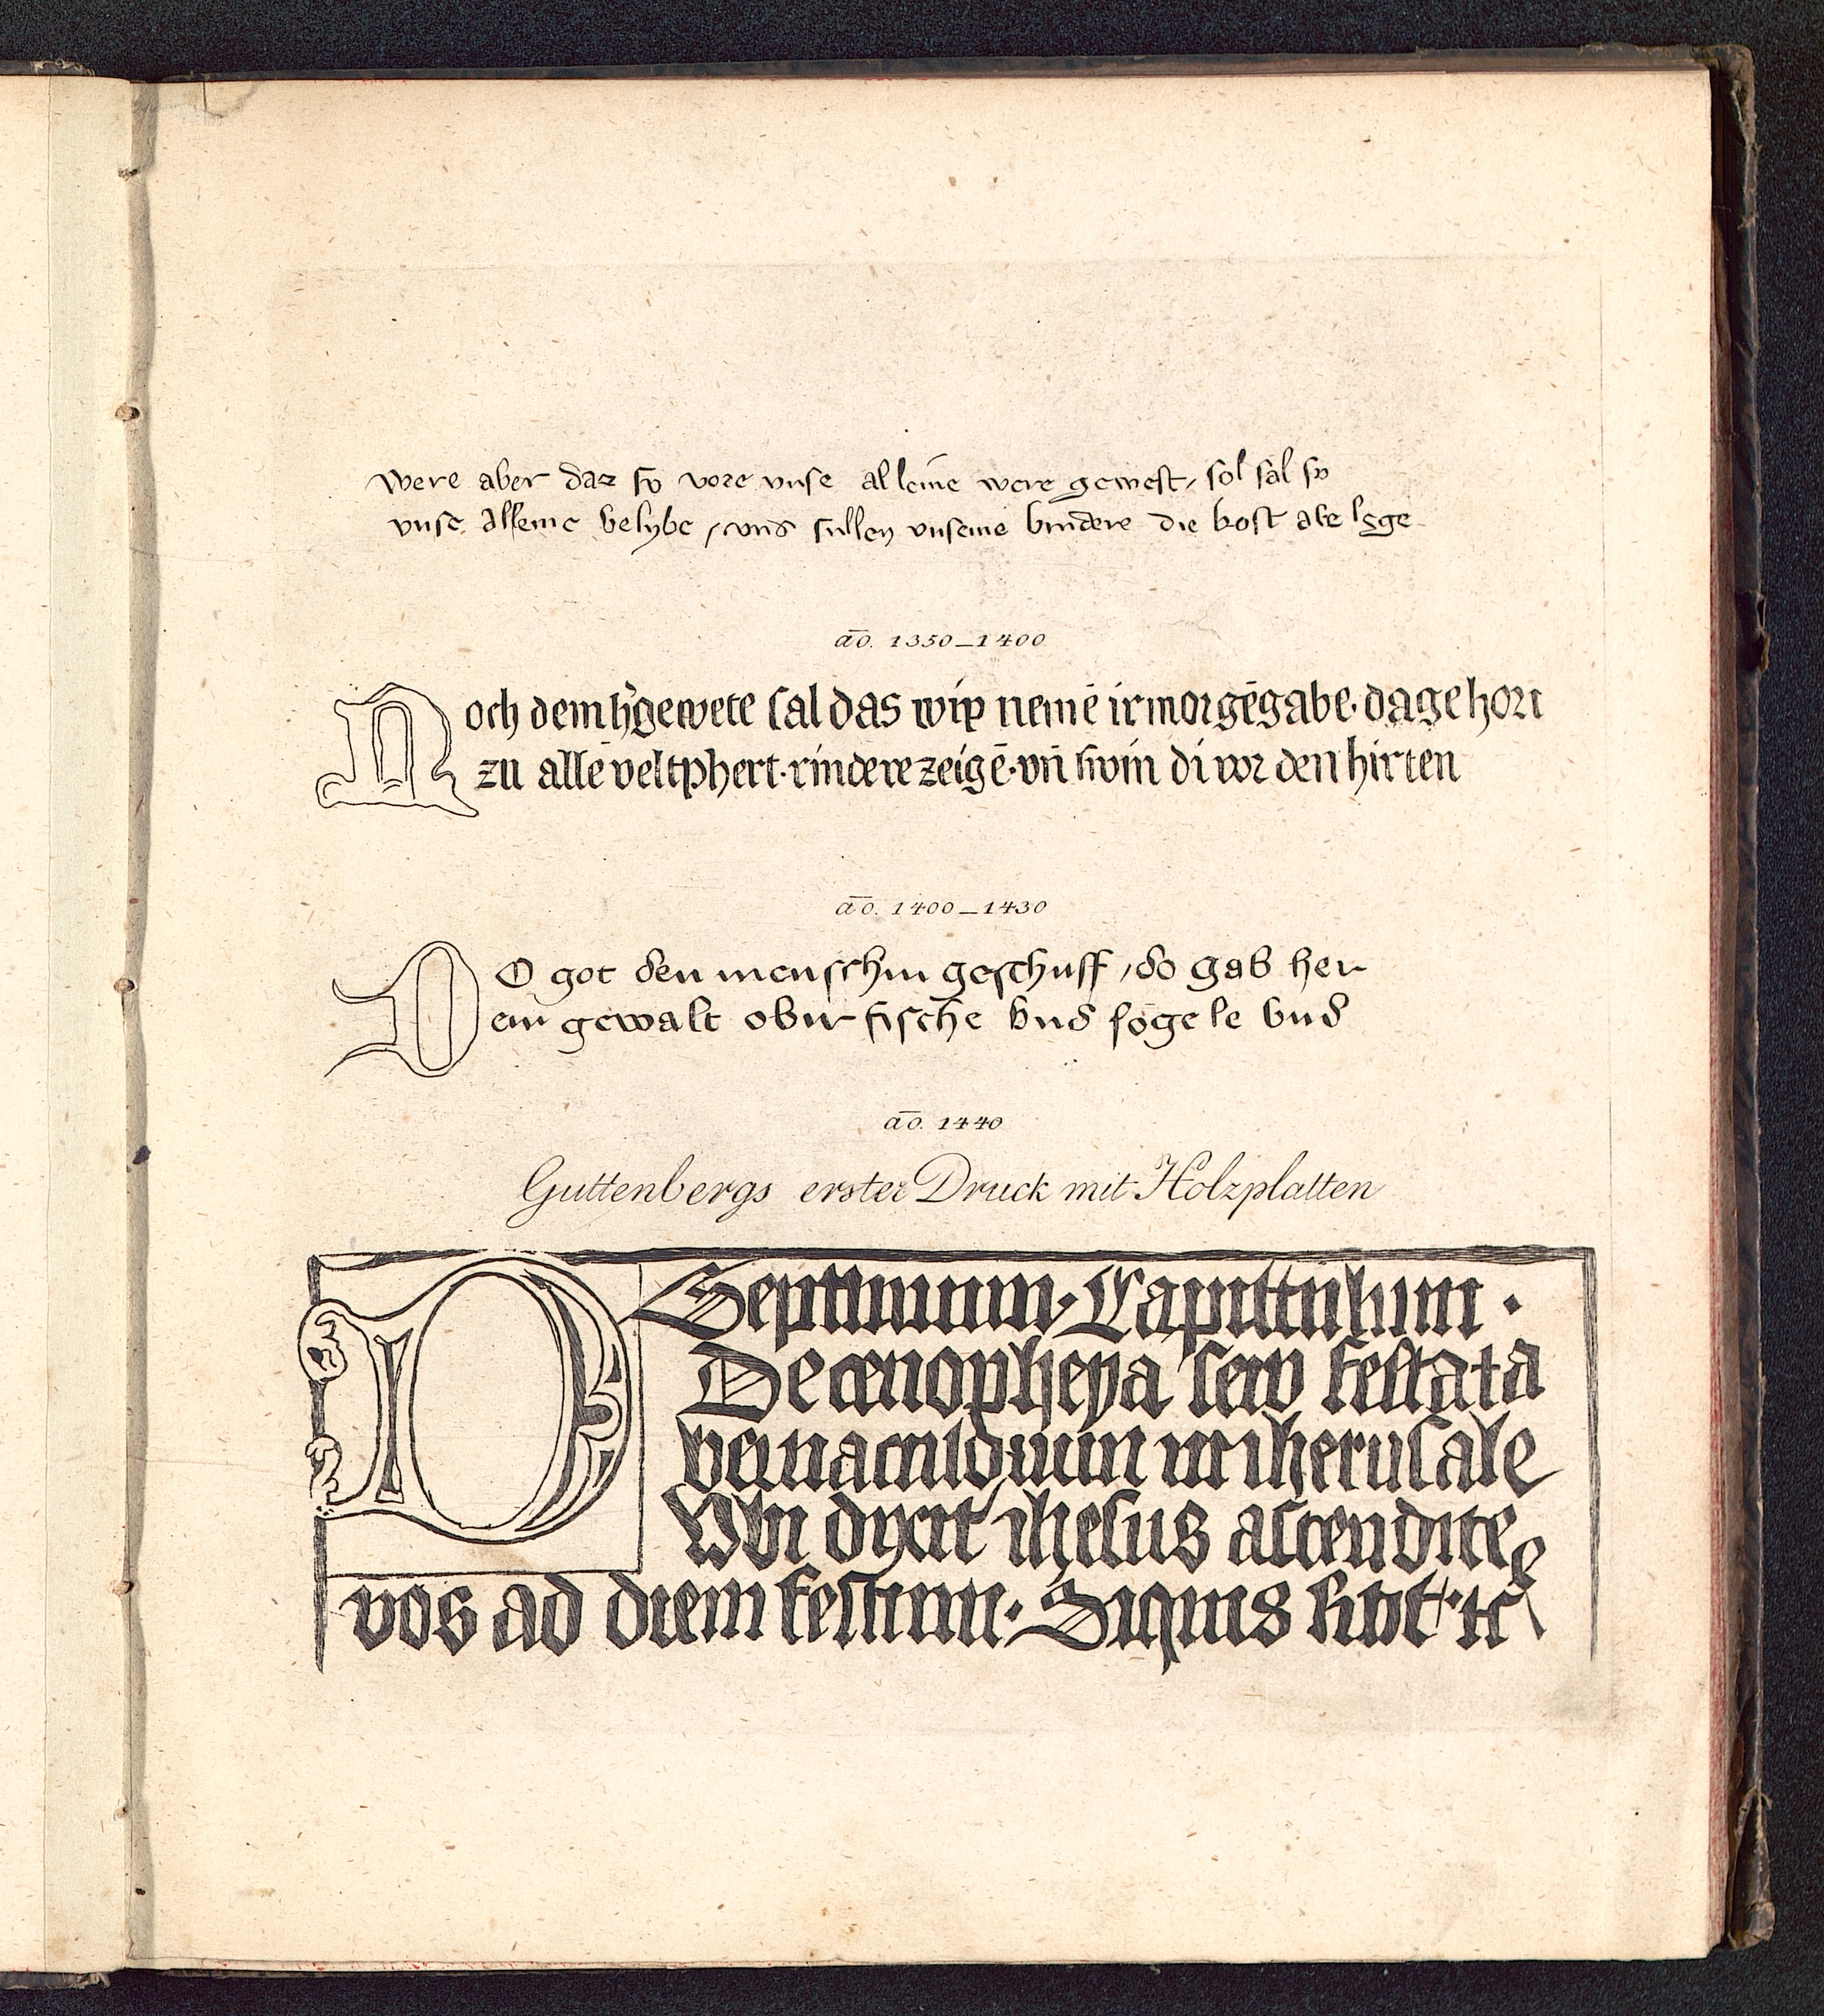 were aber daz so vore vnse alleine were gewest, sol sal so
vnse alleine belybe, vnd sullen vnseme bruidere die kost abe lege
a̅o. 1350_1400
Noch dem h'gewete sal das wip nemē ir morgēgabe. da gehort
zu allē veltphert. rindere zeigē. vn̄ swin di vor den hirten
a̅o. 1400_1430
DO got den menschin geschuff, do gab her
em gewalt obir fische vnd fogele vnd
a̅o. 1440
Guttenbergs erster Druck mit Holzplatten
Septimum. Capittulum.
De cenopheya sew festata
vernaculorum in iherusale
Vbi dycit ihesus ascendite
vos ad diem festum. Siquis sitit. ꝛc